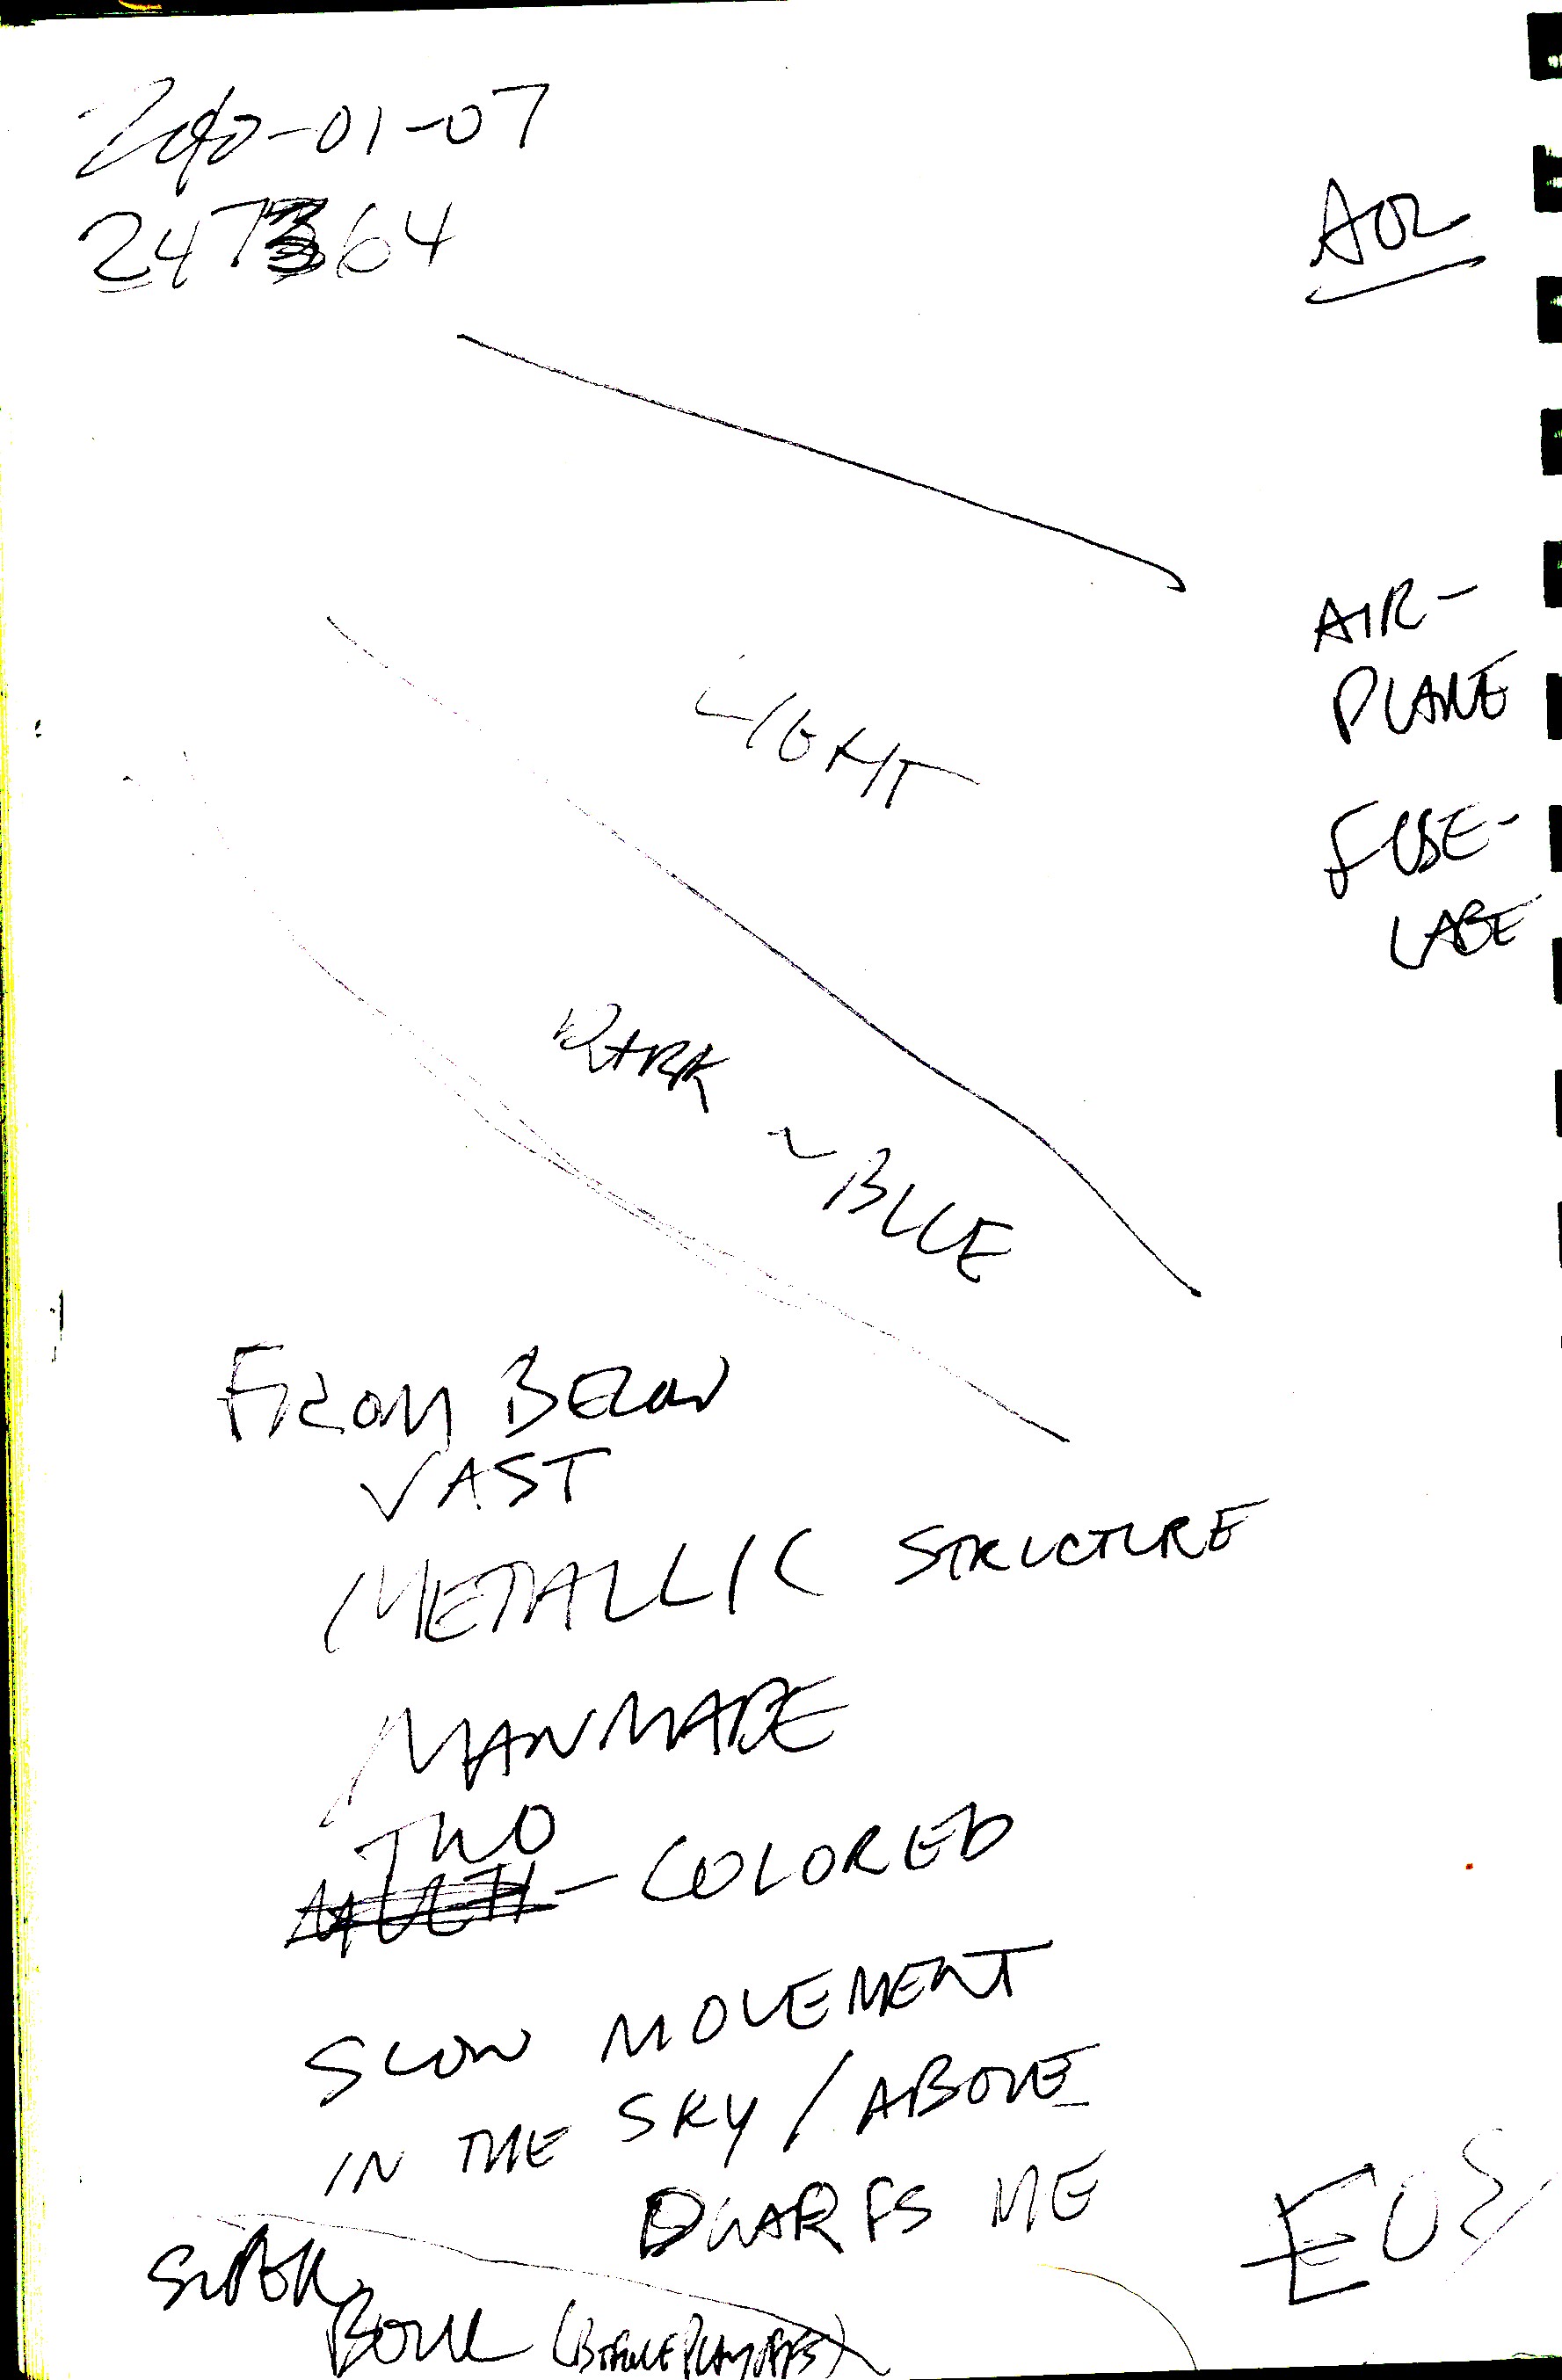 2010-01-07
247364
AOL
AIR-
PLANE
FUSE-
LAGE
LIGHT
DARK ~ BLUE
FROM BELOW
VAST
METALLIC STRUCTURE
MANMADE
TWO
MULTI-COLORED
SLOW MOVEMENT
IN THE SKY / ABOVE
DWARFS ME
EOS
SUPER
BOWL (BEFORE PLAYOFFS)